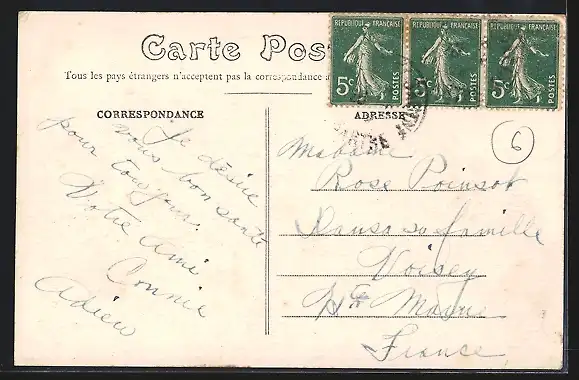 Carte Pos
Tous les pays étrangers n'acceptent pas la correspondance
REPUBLIQUE FRANÇAISE
5c
POSTES
REPUBLIQUE FRANÇAISE
5c
POSTES
REPUBLIQUE FRANÇAISE
5c
POSTES
CORRESPONDANCE
Je désire
vous bon santé
pour toujour.
Votre Ami
Connie
Adieu
ADRESSE
6
Madame
Rose Poinsot
sa famille
Voisey
Hte Marne
France